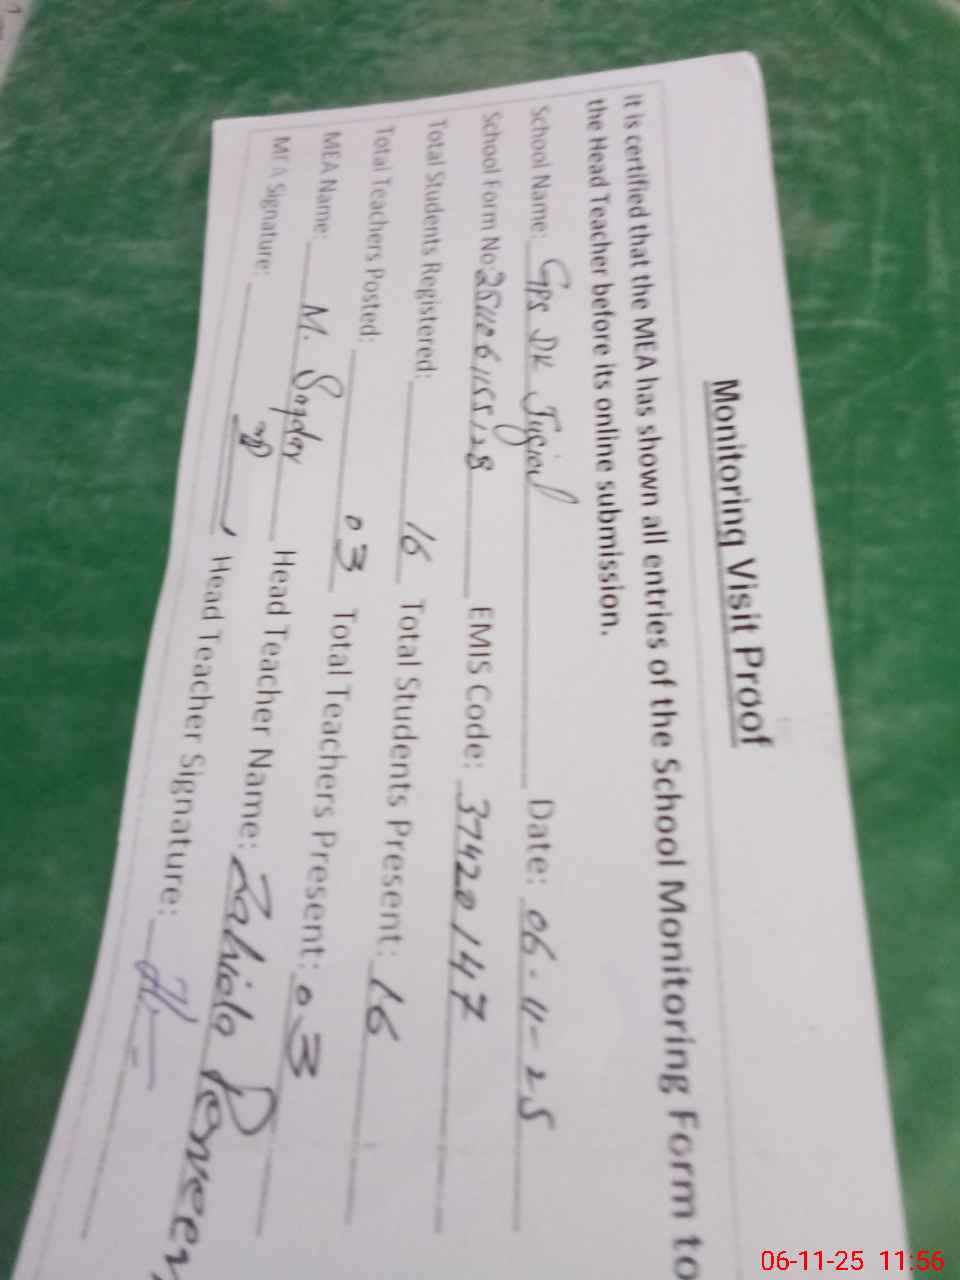 Monitoring Visit Proof
it is certified that the MEA has shown all entries of the School Monitoring Form to
the Head Teacher before its online submission.
School Name: GPS DK Date: 06-11-25
School Form No: EMIS Code: 37420147
Total Students Registered: 16 Total Students Present: 16
Total Teachers Posted: 03 Total Teachers Present: 03
MEA Name: M. Head Teacher Name: Zahida Perveen
MEA Signature: Head Teacher Signature:
06-11-25 11:56